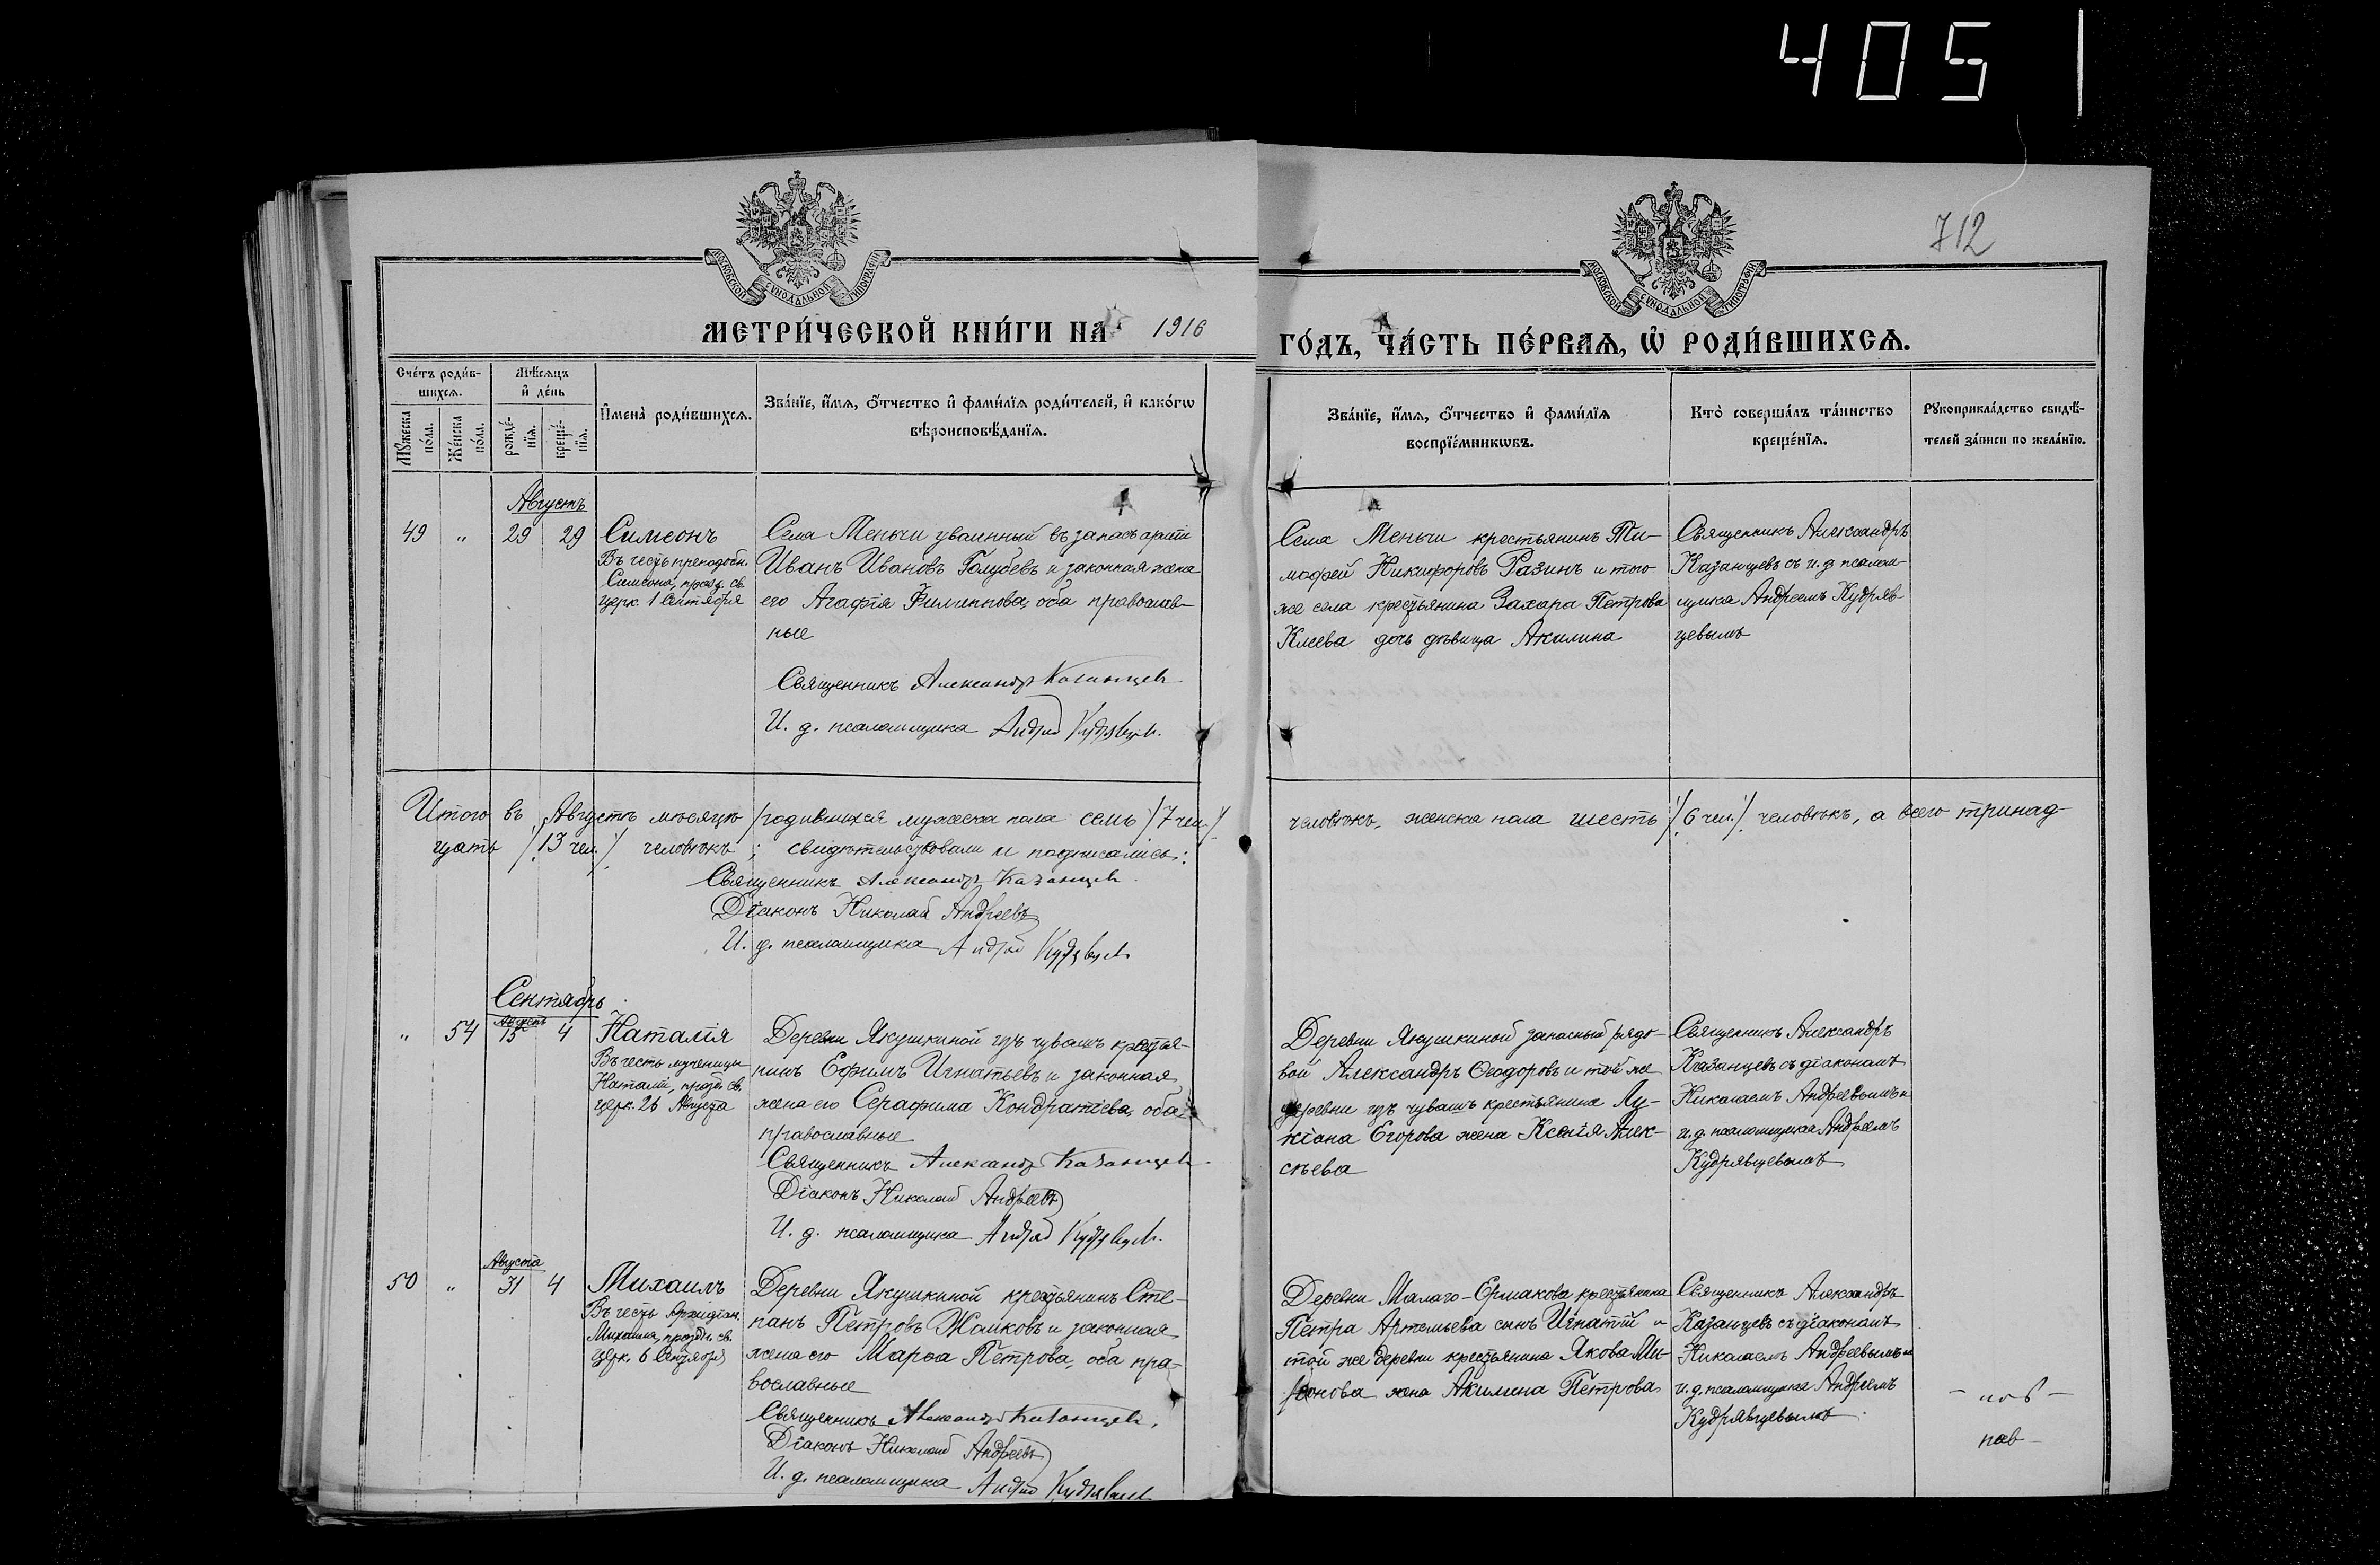 405
712
МОСКОВСКОЙ СѴНОДАЛЬНОЙ ТИПОГРАФІИ
МОСКОВСКОЙ СѴНОДАЛЬНОЙ ТИПОГРАФІИ
МЕТРИ́ЧЕСКОЙ КНИ́ГИ НА 1916
ГО́ДЪ, ЧА́СТЬ ПЕ́РВАѦ, Ѡ҆ РОДИ́ВШИХСѦ.
Сче́тъ роди́в-
шихсѧ.
Мꙋ́жеска
по́ла.
Же́нска
по́ла.
Мѣ́сѧцъ
и҆ де́нь
рожде́-
нїѧ.
креще́-
нїѧ.
И҆мена̀ роди́вшихсѧ.
Зва́нїе, и҆́мѧ, ѻ҆́тчество и҆ фами́лїѧ роди́телей, и҆ како́гѡ
вѣроисповѣ́данїѧ.
Зва́нїе, и҆́мѧ, ѻ҆́тчество и҆ фами́лїѧ
воспрїе́мникѡвъ.
Кто̀ соверша́лъ та́инство
креще́нїѧ.
Рꙋкоприкла́дство свидѣ́-
телей за́писи по жела́нїю.
Августъ
49 " 29 29 Симеонъ
Въ честь преподобн.
Симеона, празд. св.
церк. 1 Сентября
Села Меньчи уволенный въ запасъ арміи
Иванъ Ивановъ Голубевъ и законная жена
его Агафія Филиппова, оба православ-
ные
Священникъ Александръ Казанцевъ
И. д. псаломщика Андрей Кудрявцевъ.
Села Меньчи крестьянинъ Ти-
мофей Никифоровъ Разинъ и того
же села крестьянина Захара Петрова
Клеева дочь дѣвица Акилина
Священникъ Александръ
Казанцевъ съ и. д. псалом-
щика Андреемъ Кудряв-
цевымъ
Итого въ Августѣ мѣсяцѣ родившихся мужеска пола семь /7 чел./
человѣкъ, женска пола шесть /6 чел./ человѣкъ, а всего тринад-
цать /13 чел./ человѣкъ; свидѣтельствовали и подписались:
Священникъ Александръ Казанцевъ.
Діаконъ Николай Андреевъ
И. д. псаломщика Андрей Кудрявцевъ
Сентябрь
Августъ
" 54 15 4 Наталія
Въ честь мученицы
Наталіи, празд. св.
церк. 26 Августа
Деревни Якушкиной изъ чувашъ крестья-
нинъ Ефимъ Игнатьевъ и законная
жена его Серафима Кондратіева, оба
православные
Священникъ Александръ Казанцевъ
Діаконъ Николай Андреевъ
И. д. псаломщика Андрей Кудрявцевъ.
Деревни Якушкиной запасный рядо-
вой Александръ Ѳеодоровъ и той же
деревни изъ чувашъ крестьянина Лу-
кіана Егорова жена Ксенія Алек-
сѣева
Священникъ Александръ
Казанцевъ съ діакономъ
Николаемъ Андреевымъ и
и. д. псаломщика Андреемъ
Кудрявцевымъ
Августа
50 " 31 4 Михаилъ
Въ честь
Михаила, праздн. св.
церк. 6 Сентября
Деревни Якушкиной крестьянинъ Сте-
панъ Петровъ и законная
жена его Марѳа Петрова, оба пра-
вославные
Священникъ Александръ Казанцевъ.
Діаконъ Николай Андреевъ
И. д. псаломщика Андрей Кудрявцевъ
Деревни Малаго-Ермакова крестьянина
Петра Артемьева сынъ Игнатій и
той же деревни крестьянина Якова
жена Акилина Петрова
Священникъ Александръ
Казанцевъ съ діакономъ
Николаемъ Андреевымъ и
и. д. псаломщика Андреемъ
Кудрявцевымъ